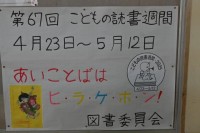 第67回 こどもの読書週間
4月23日〜5月12日
あいことばは
ヒ・ラ・ケ・ホ・ン!
図書委員会